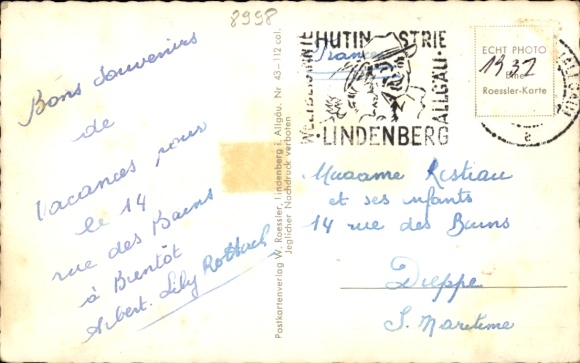 8998
Bons souvenirs
de
Vacances pour
le 14
rue des Bains
à Bientôt
Albert. Lily Rothach
Postkartenverlag W. Roessler, Lindenberg i. Allgäu. Nr 43-112 col.
Jeglicher Nachdruck verboten
WELTBEKANNTE
HUTINDUSTRIE
LINDENBERG
ALLGÄU
France
ECHT PHOTO
1932
Eine
Roessler-Karte
Madame Restiau
et ses enfants
14 rue des Bains
Dieppe
S. Maritime